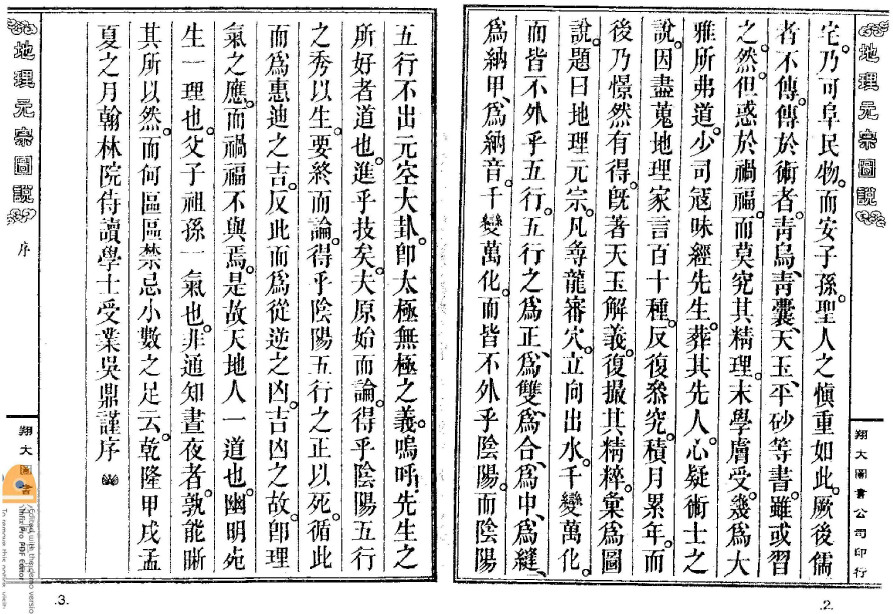 地理元宗圖說
宅。乃可阜民物。而安子孫。聖人之慎重如此。厥後儒
者不傳。傳於術者。靑烏、靑囊、天玉、平砂等書。雖或習
之。然但惑於禍福。而莫究其精理。末學膚受。幾爲大
雅所弗道。少司寇味經先生。葬其先人。心疑術士之
說。因盡蒐地理家言百十種。反復叅究。積月累年。而
後乃憬然有得。旣著天玉解義。復撮其精粹。彙爲圖
說。題曰地理元宗。凡尋龍審穴。立向出水。千變萬化。
而皆不外乎五行。五行之爲正、爲雙、爲合、爲中、爲縫、
爲納甲、爲納音。千變萬化。而皆不外乎陰陽。而陰陽
翔大圖書公司印行
.2.
五行不出元空大卦。卽太極無極之義。嗚呼、先生之
所好者道也。進乎技矣。夫原始而論。得乎陰陽五行
之秀以生。要終而論。得乎陰陽五行之正以死。循此
而爲惠迪之吉。反此而爲從逆之凶。吉凶之故。卽理
氣之應。而禍福不與焉。是故天地人一道也。幽明宛
生一理也。父子祖孫一氣也。非通知晝夜者。孰能晰
其所以然。而何區區禁忌小數之足云。乾隆甲戌孟
夏之月翰林院侍讀學士受業吳鼎謹序
地理元宗圖說
序
翔大圖書
.3.